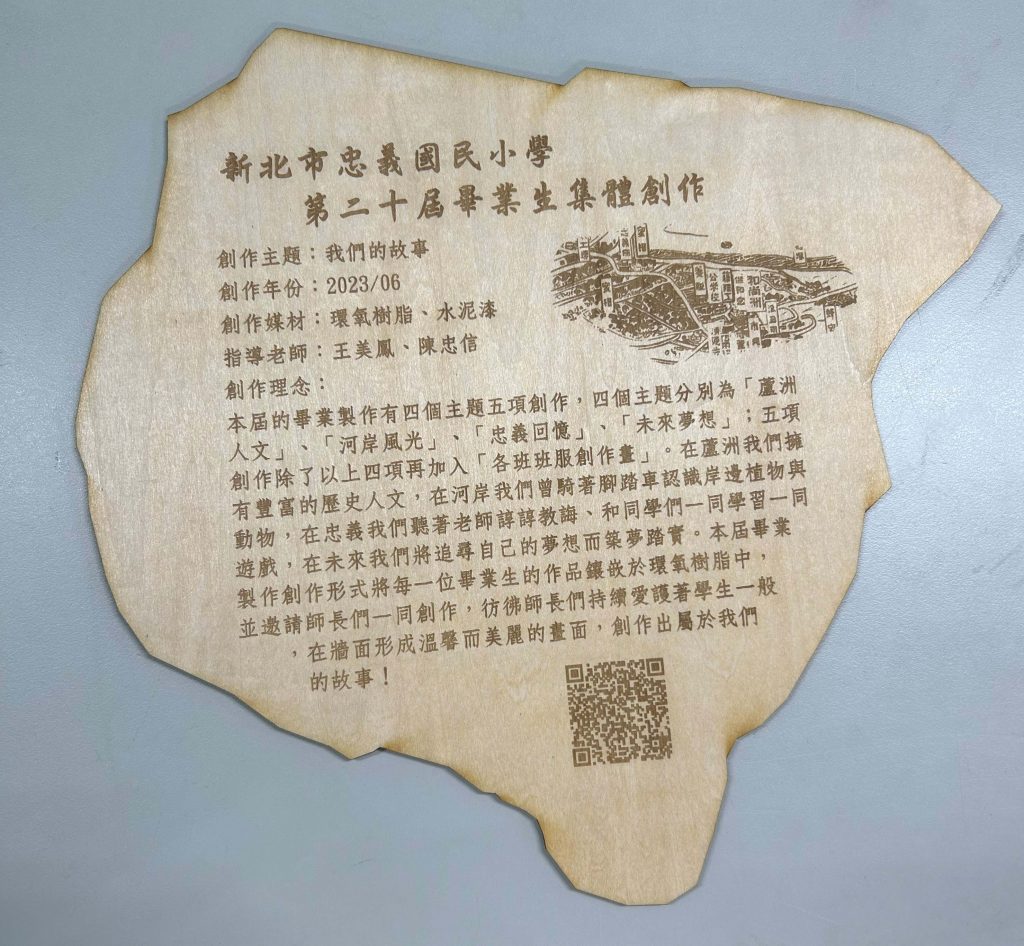 新北市忠義國民小學
第二十屆畢業生集體創作
創作主題：我們的故事
創作年份：2023/06
創作媒材：環氧樹脂、水泥漆
指導老師：王美鳳、陳忠信
創作理念：
本屆的畢業製作有四個主題五項創作，四個主題分別為「蘆洲
人文」、「河岸風光」、「忠義回憶」、「未來夢想」；五項
創作除了以上四項再加入「各班班服創作畫」。在蘆洲我們擁
有豐富的歷史人文，在河岸我們曾騎著腳踏車認識岸邊植物與
動物，在忠義我們聽著老師諄諄教誨、和同學們一同學習一同
遊戲，在未來我們將追尋自己的夢想而築夢踏實。本屆畢業
製作創作形式將每一位畢業生的作品鑲嵌於環氧樹脂中，
並邀請師長們一同創作，彷彿師長們持續愛護著學生一般
，在牆面形成溫馨而美麗的畫面，創作出屬於我們
的故事！
和尚洲